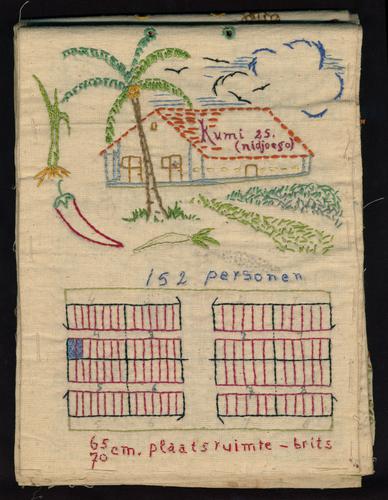 Kumi 25.
(nidjoego)
152 personen
4 3
5 6
65
70 cm. plaatsruimte - brits